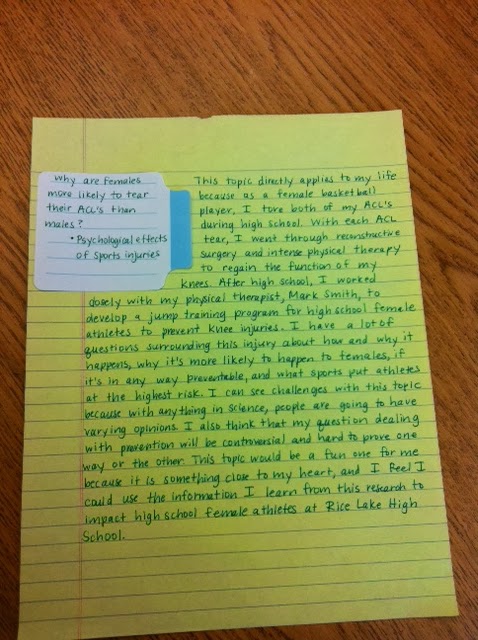 why are females
more likely to tear
their ACL's than
males?
• Psychological effects
of sports injuries
This topic directly applies to my life
because as a female basketball
player, I tore both of my ACL's
during high school. With each ACL
tear, I went through reconstructive
surgery and intense physical therapy
to regain the function of my
knees. After high school, I worked
closely with my physical therapist, Mark Smith, to
develop a jump training program for high school female
athletes to prevent knee injuries. I have a lot of
questions surrounding this injury about how and why it
happens, why it's more likely to happen to females, if
it's in any way preventable, and what sports put athletes
at the highest risk. I can see challenges with this topic
because with anything in science, people are going to have
varying opinions. I also think that my question dealing
with prevention will be controversial and hard to prove one
way or the other. This topic would be a fun one for me
because it is something close to my heart, and I feel I
could use the information I learn from this research to
impact high school female athletes at Rice Lake High
School.